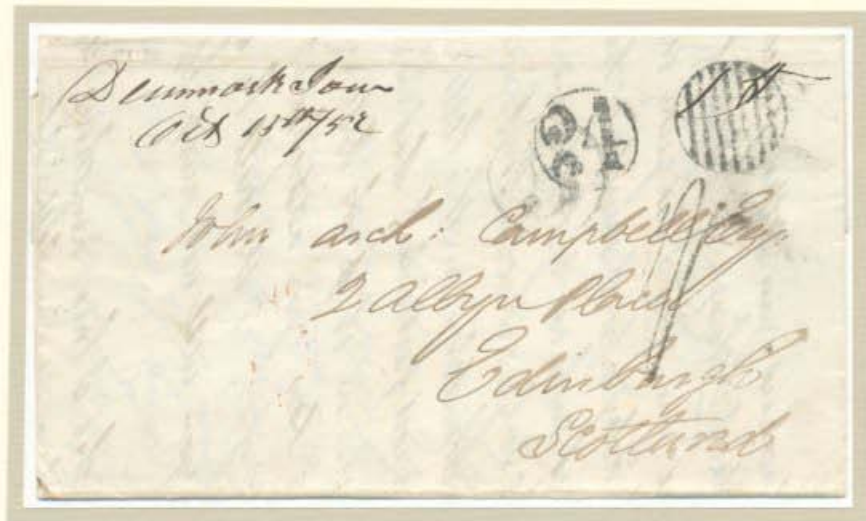 Denmark Iowa
Oct 15th/52
John Arch: Campbell Esq.
2 Albyn Place
Edinburgh
Scotland